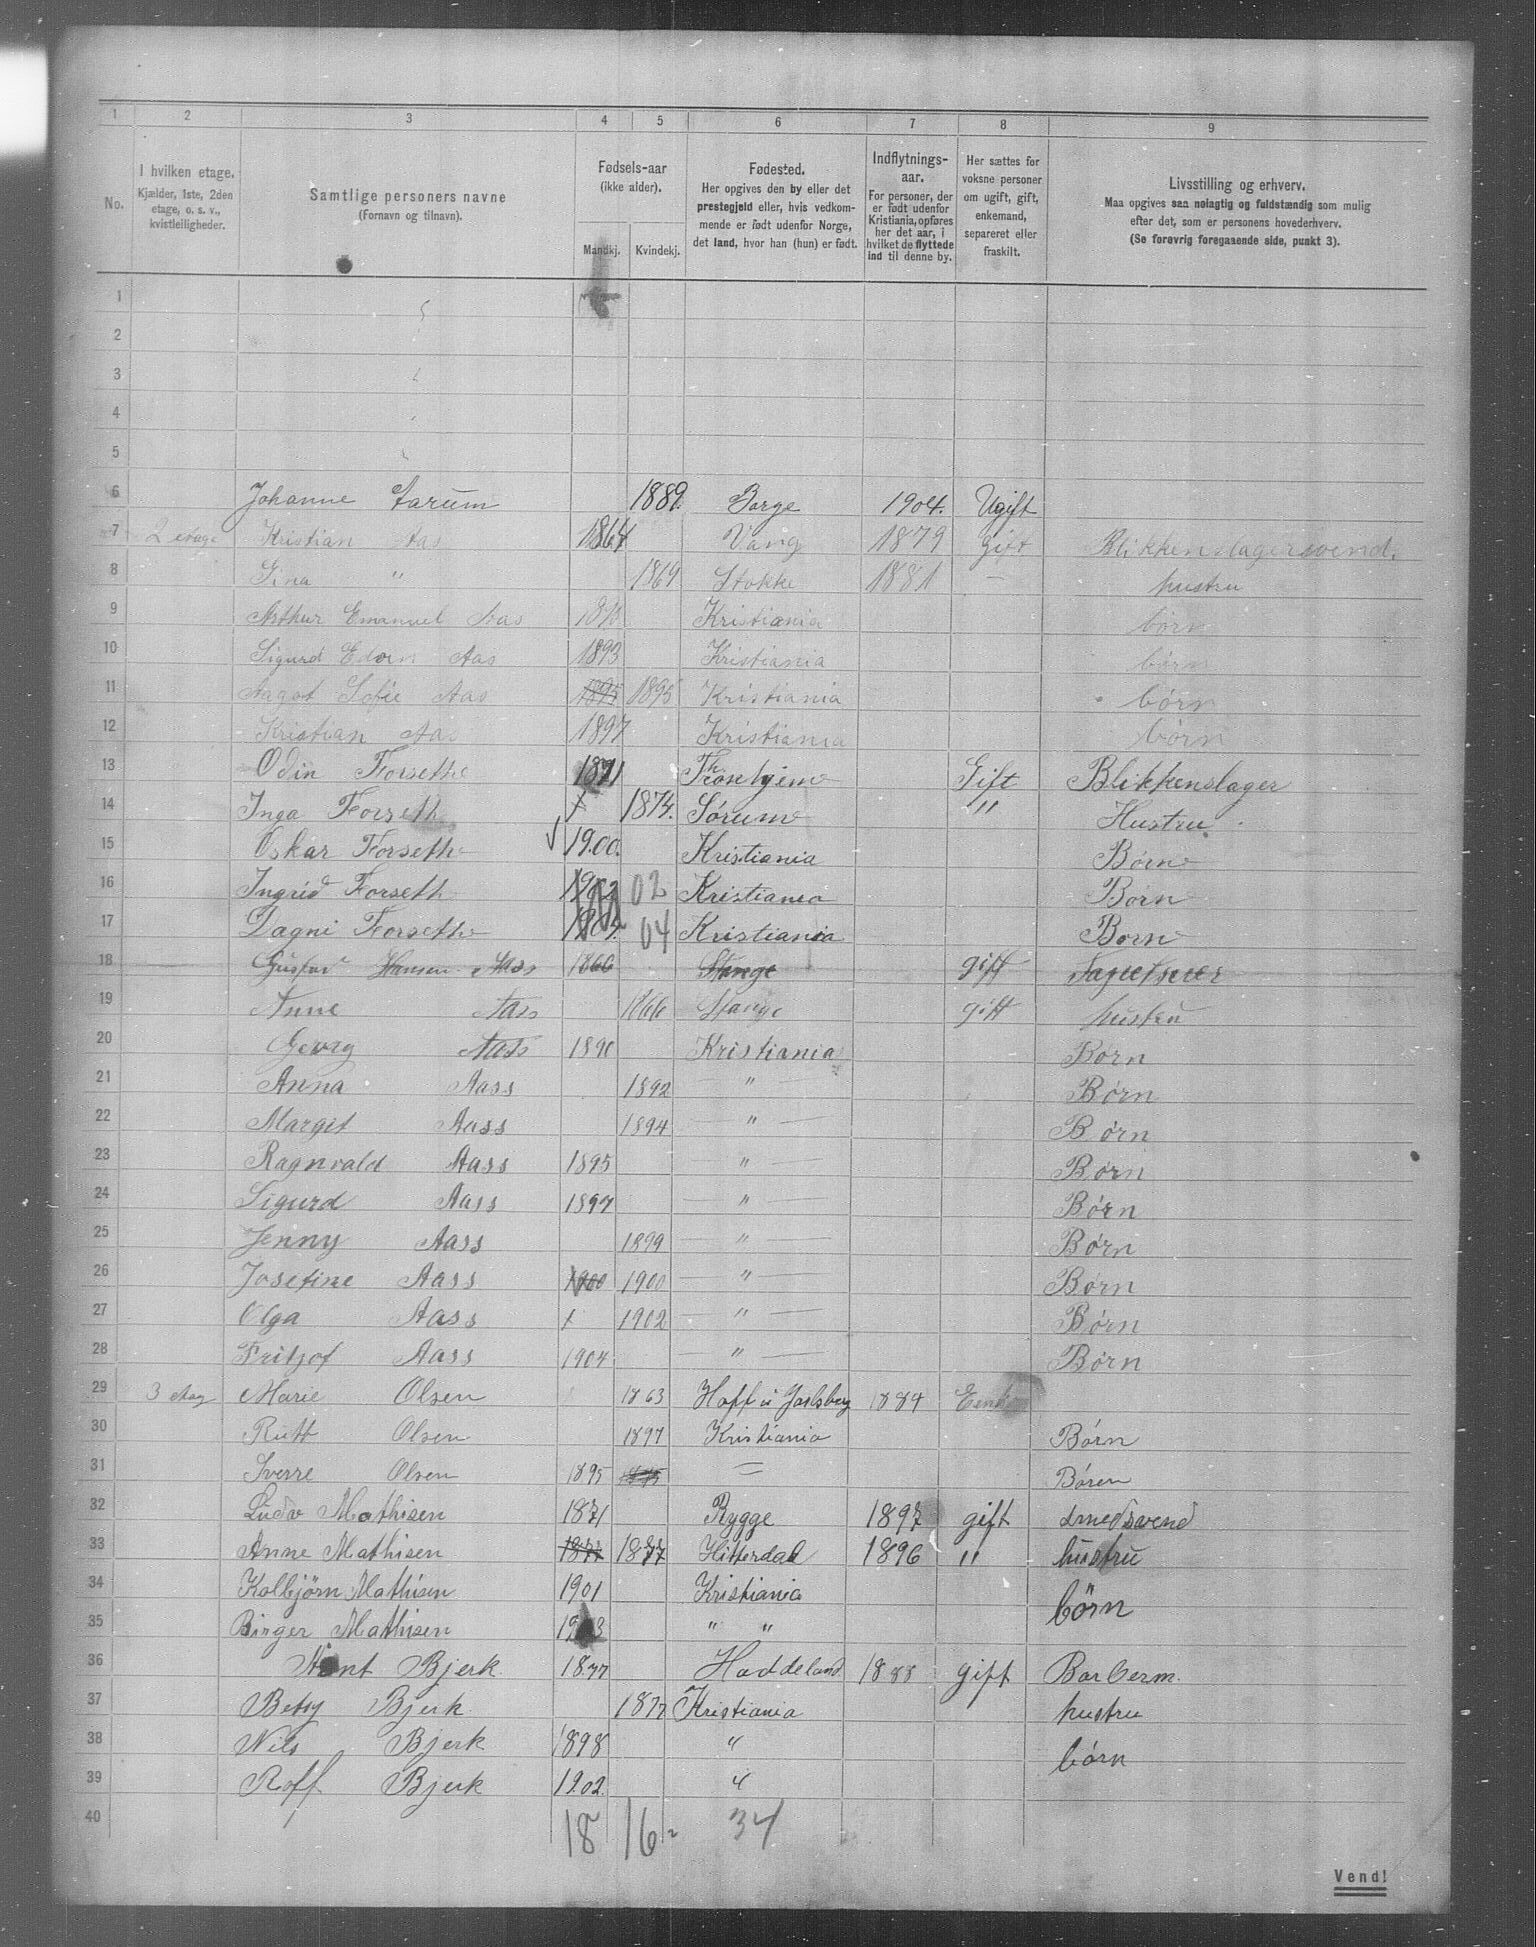 1 2 3 4 5 6 7 8 9
No.
I hvilken etage.
Kjælder, 1ste, 2den
etage, o. s. v.,
kvistleiligheder.
Samtlige personers navne
(Fornavn og tilnavn).
Fødsels-aar
(ikke alder).
Mandkj. Kvindekj.
Fødested.
Her opgives den by eller det
prestegjeld eller, hvis vedkom-
mende er født udenfor Norge,
det land, hvor han (hun) er født.
Indflytnings-
aar.
For personer, der
er født udenfor
Kristiania, opføres
her det aar, i
hvilket de flyttede
ind til denne by.
Her sættes for
voksne personer
om ugift, gift,
enkemand,
separeret eller
fraskilt.
Livsstilling og erhverv.
Maa opgives saa nøiagtig og fuldstændig som mulig
efter det, som er personens hovederhverv.
(Se forøvrig foregaaende side, punkt 3).
1
2
3
4
5
6 Johanne Larum 1889. Borge 1904. Ugift
7 2 etage Kristian Aas 1864 Vang 1879 gift Blikkenslagersvend.
8 Gina " 1869 Stokke 1881 - hustru
9 Arthur Emanuel Aas Kristiania børn
10 Sigurd Edvin Aas 1893 Kristiania børn
11 Aagot Sofie Aas 1895 1895 Kristiania børn
12 Kristian Aas 1897 Kristiania børn
13 Odin Forseth 1871 Thronhjem Gift Blikkenslager
14 Inga Forseth 1874. Sørum " Hustru.
15 Oskar Forseth 1900. Kristiania Børn
16 Ingrid Forseth 02 Kristiania Børn
17 Dagni Forseth 04 Kristiania Børn
18 Gustav Hansen Aass 1866 Stange gift Tapetserer
19 Anne Aass 1866 Stange gift hustru
20 Georg Aass 1890 Kristiania Børn
21 Anna Aass 1892 — " — Børn
22 Margit Aass 1894 — " — Børn
23 Ragnvald Aass 1895 — " — Børn
24 Sigurd Aass 1897 — " — Børn
25 Jenny Aass 1899 — " — Børn
26 Josefine Aass 1900 1900 — " — Børn
27 Olga Aass 1902 — " — Børn
28 Fritjof Aass 1904 — " — Børn
29 3 etag Marie Olsen 1863 Hoff i Jarlsberg 1884 Enke
30 Rutt Olsen 1897 Kristiania Børn
31 Sverre Olsen 1895 1895 — Børen
32 Ludv Mathisen 1871 Rygge 1897 gift smedsvend
33 Anne Mathisen 1877 1877 Hitterdal 1896 " hustru
34 Kolbjörn Mathisen 1901 Kristiania börn
35 Birger Mathisen 1903 " "
36 Bjerk 1877 Haddeland 1888 gift Barberm.
37 Betsy Bjerk 1877 Kristiania hustru
38 Nils Bjerk 1898 " børn
39 Rolf Bjerk 1902. "
40 18 16 34
Vend!